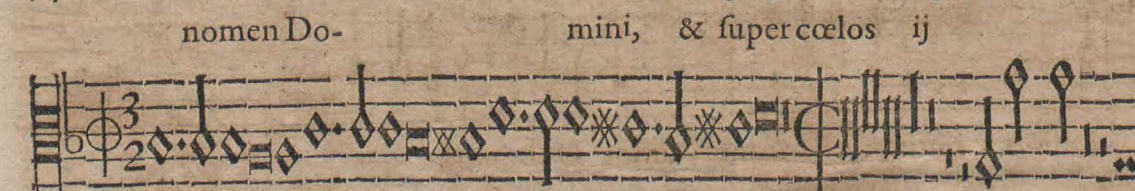 nomen Do- mini, & ſuper cœlos ij
3
2